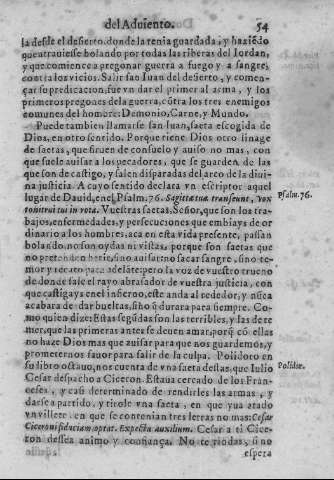 del Aduiento.
54
la desde el desierto, donde la tenia guardada, y haziẽdo
que atrauiesse bolando por todas las riberas del Iordan,
y que comience a pregonar guerra a fuego y a sangre,
contra los vicios. Salir san Iuan del desierto, y començar
su predicacion, fue vn dar el primer al arma, y los
primeros pregones de la guerra, cõtra los tres enemigos
comunes del hombre: Demonio, Carne, y Mundo.
Puede tambien llamarse san Iuan, saeta escogida de
Dios, en otro sentido. Porque tiene Dios otro linage
de saetas, que siruen de consuelo y auiso no mas, con
que suele auisar a los pecadores, que se guarden de las
que son de castigo, y salen disparadas del arco de la diuina
justicia. A cuyo sentido declara vn escriptor aquel
lugar de Dauid, en el Psalm. 76. Sagittæ tuæ transeunt, vox
tonitrui tui in rota. Vuestras saetas, Señor, que son los trabajos,
enfermedades, y persecuciones que embiays de ordinario
a los hombres, aca en esta vida presente, passan
bolando, no son oydas ni vistas, porque son saetas que
no pretenden herir, sino auisar: no sacar sangre, sino temor
y recato para adelãte: pero la voz de vuestro trueno
de donde sale el rayo abrasador de vuestra justicia, con
que castigays en el infierno, este anda al rededor, y nũca
acabara de dar bueltas, sino q̃ durara para siempre. Como
quien dize: Estas segũdas son las terribles, y las de temer,
que las primeras antes se deuen amar, porq̃ cõ ellas
no haze Dios mas que auisar para que nos guardemos, y
prometernos fauor para salir de la culpa. Polidoro en
su libro octauo, nos cuenta de vna saeta destas, que Iulio
Cesar despacho a Ciceron. Estaua cercado de los Franceses,
y casi determinado de rendirles las armas, y
darse a partido, y tirole vna saeta, en que yua atado
vn villete, en que se contenian tres letras no mas: Cesar
Ciceroni fiduciam optat. Expecta auxilium. Cesar a ti Ciceron
dessea animo y confiança. No te rindas, sino
espera
Psalm. 76.
Polidor.